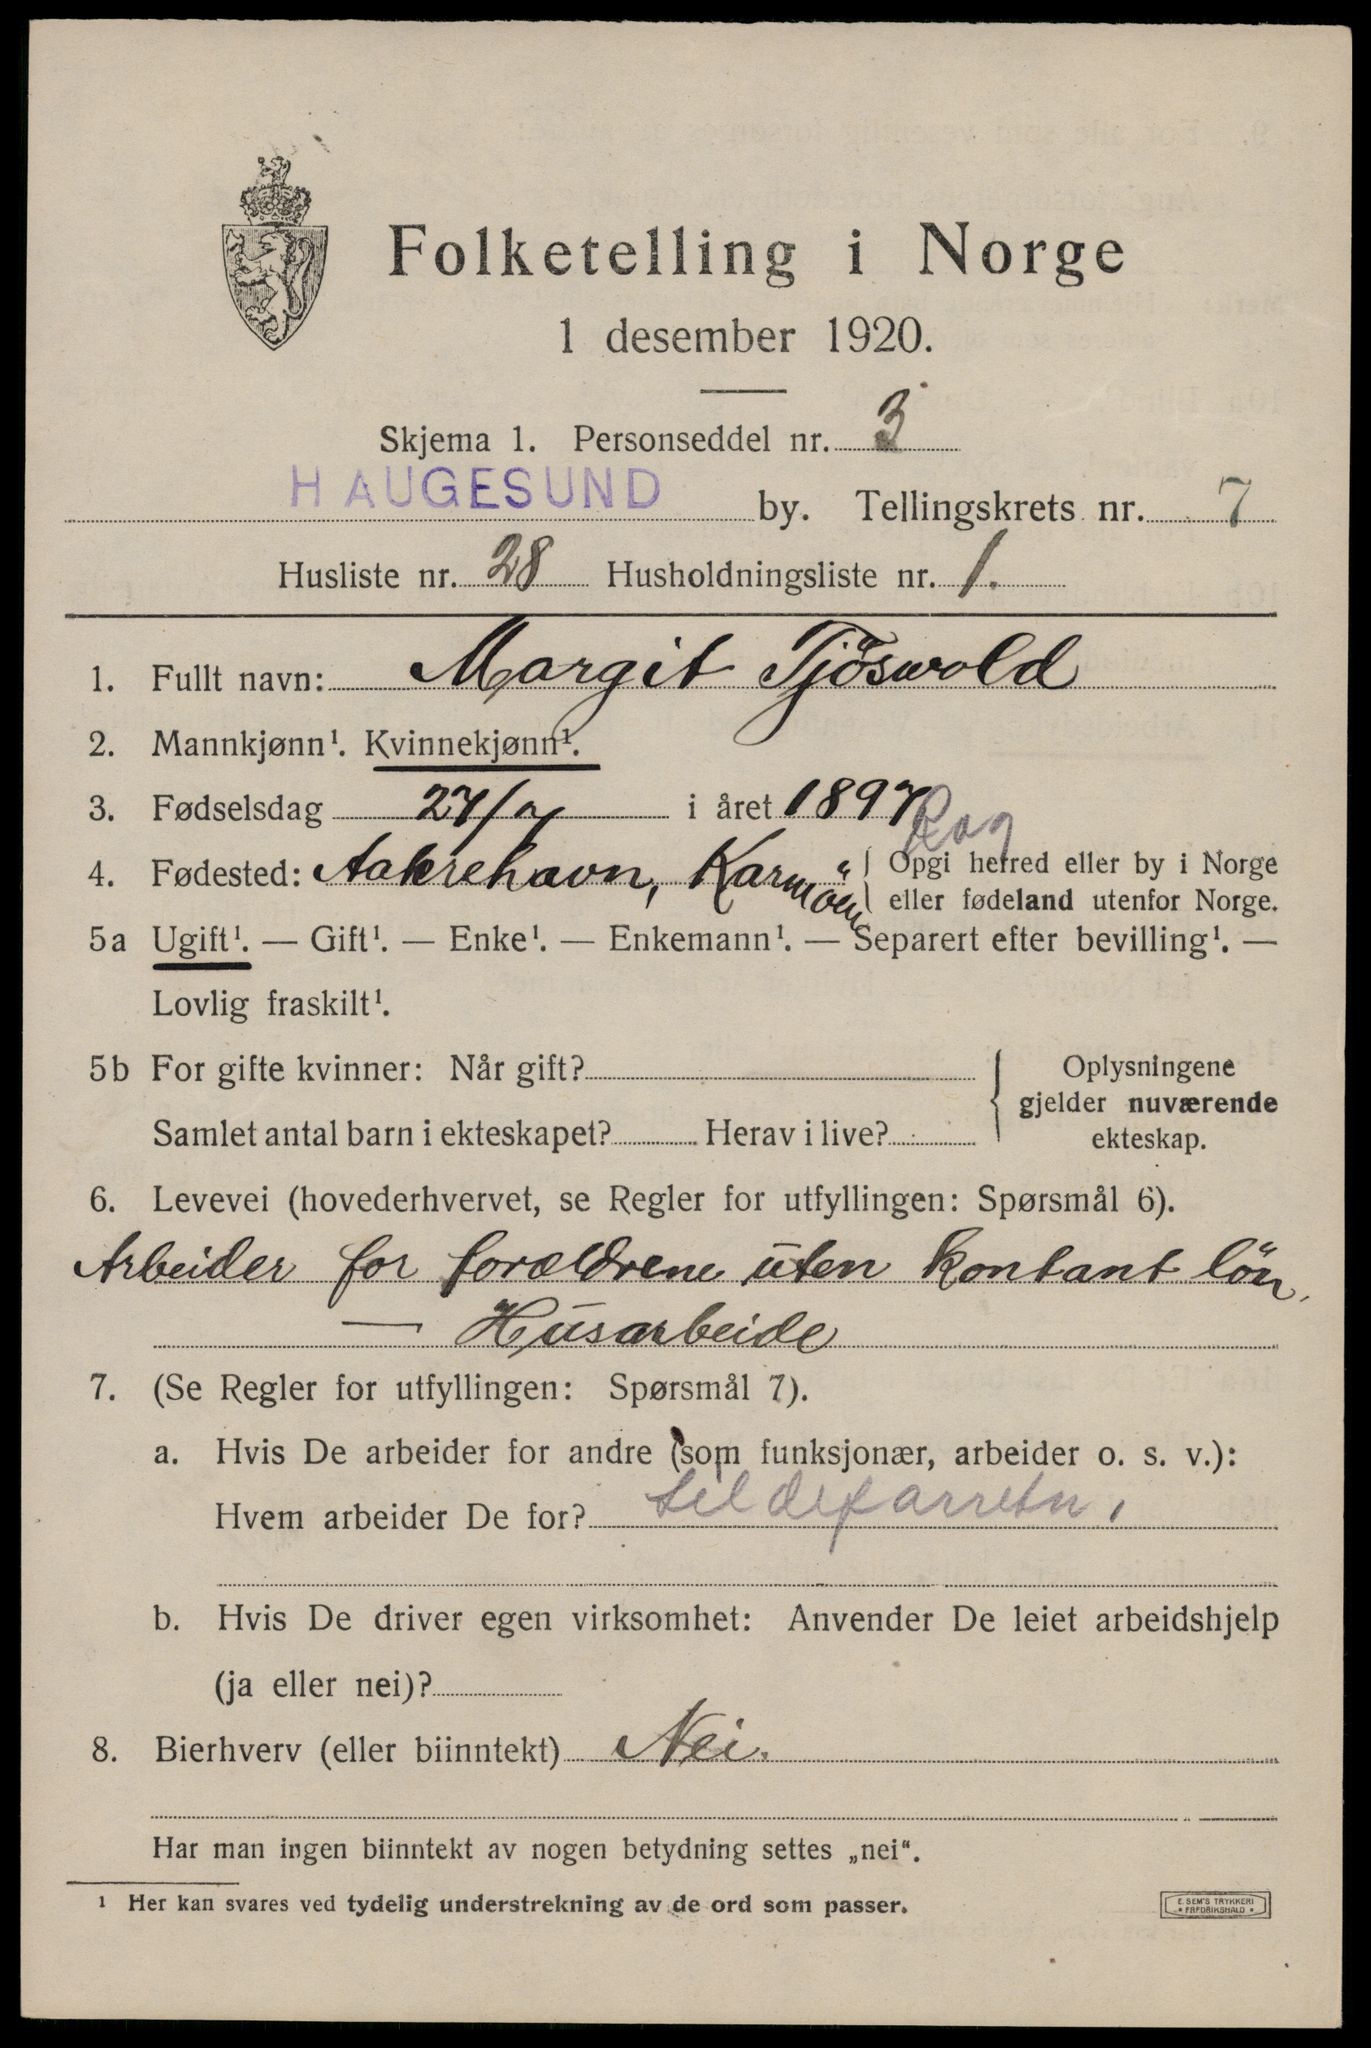 Folketelling i Norge
1 desember 1920.
Skjema 1. Personseddel nr. 3
HAUGESUND by. Tellingskrets nr. 7
Husliste nr. 28 Husholdningsliste nr. 1.
1. Fullt navn: Margit Tjöswold
2. Mannkjønn¹. Kvinnekjønn¹.
3. Fødselsdag 27/7 i året 1897
Rog
4. Fødested: Aakrehavn, Karmöen { Opgi herred eller by i Norge
eller fødeland utenfor Norge.
5a Ugift¹. — Gift¹. — Enke¹. — Enkemann¹. — Separert efter bevilling¹. —
Lovlig fraskilt¹.
5b For gifte kvinner: Når gift?
Samlet antal barn i ekteskapet? Herav i live?
{ Oplysningene
gjelder nuværende
ekteskap.
6. Levevei (hovederhvervet, se Regler for utfyllingen: Spørsmål 6).
Arbeider for forældrene uten kontant lön,
— Husarbeide
7. (Se Regler for utfyllingen: Spørsmål 7).
a. Hvis De arbeider for andre (som funksjonær, arbeider o. s. v.):
Hvem arbeider De for?
b. Hvis De driver egen virksomhet: Anvender De leiet arbeidshjelp
(ja eller nei)?
8. Bierhverv (eller biinntekt) Nei.
Har man ingen biinntekt av nogen betydning settes „nei“.
¹ Her kan svares ved tydelig understrekning av de ord som passer.
E. SEM'S TRYKKERI
* FREDRIKSHALD *